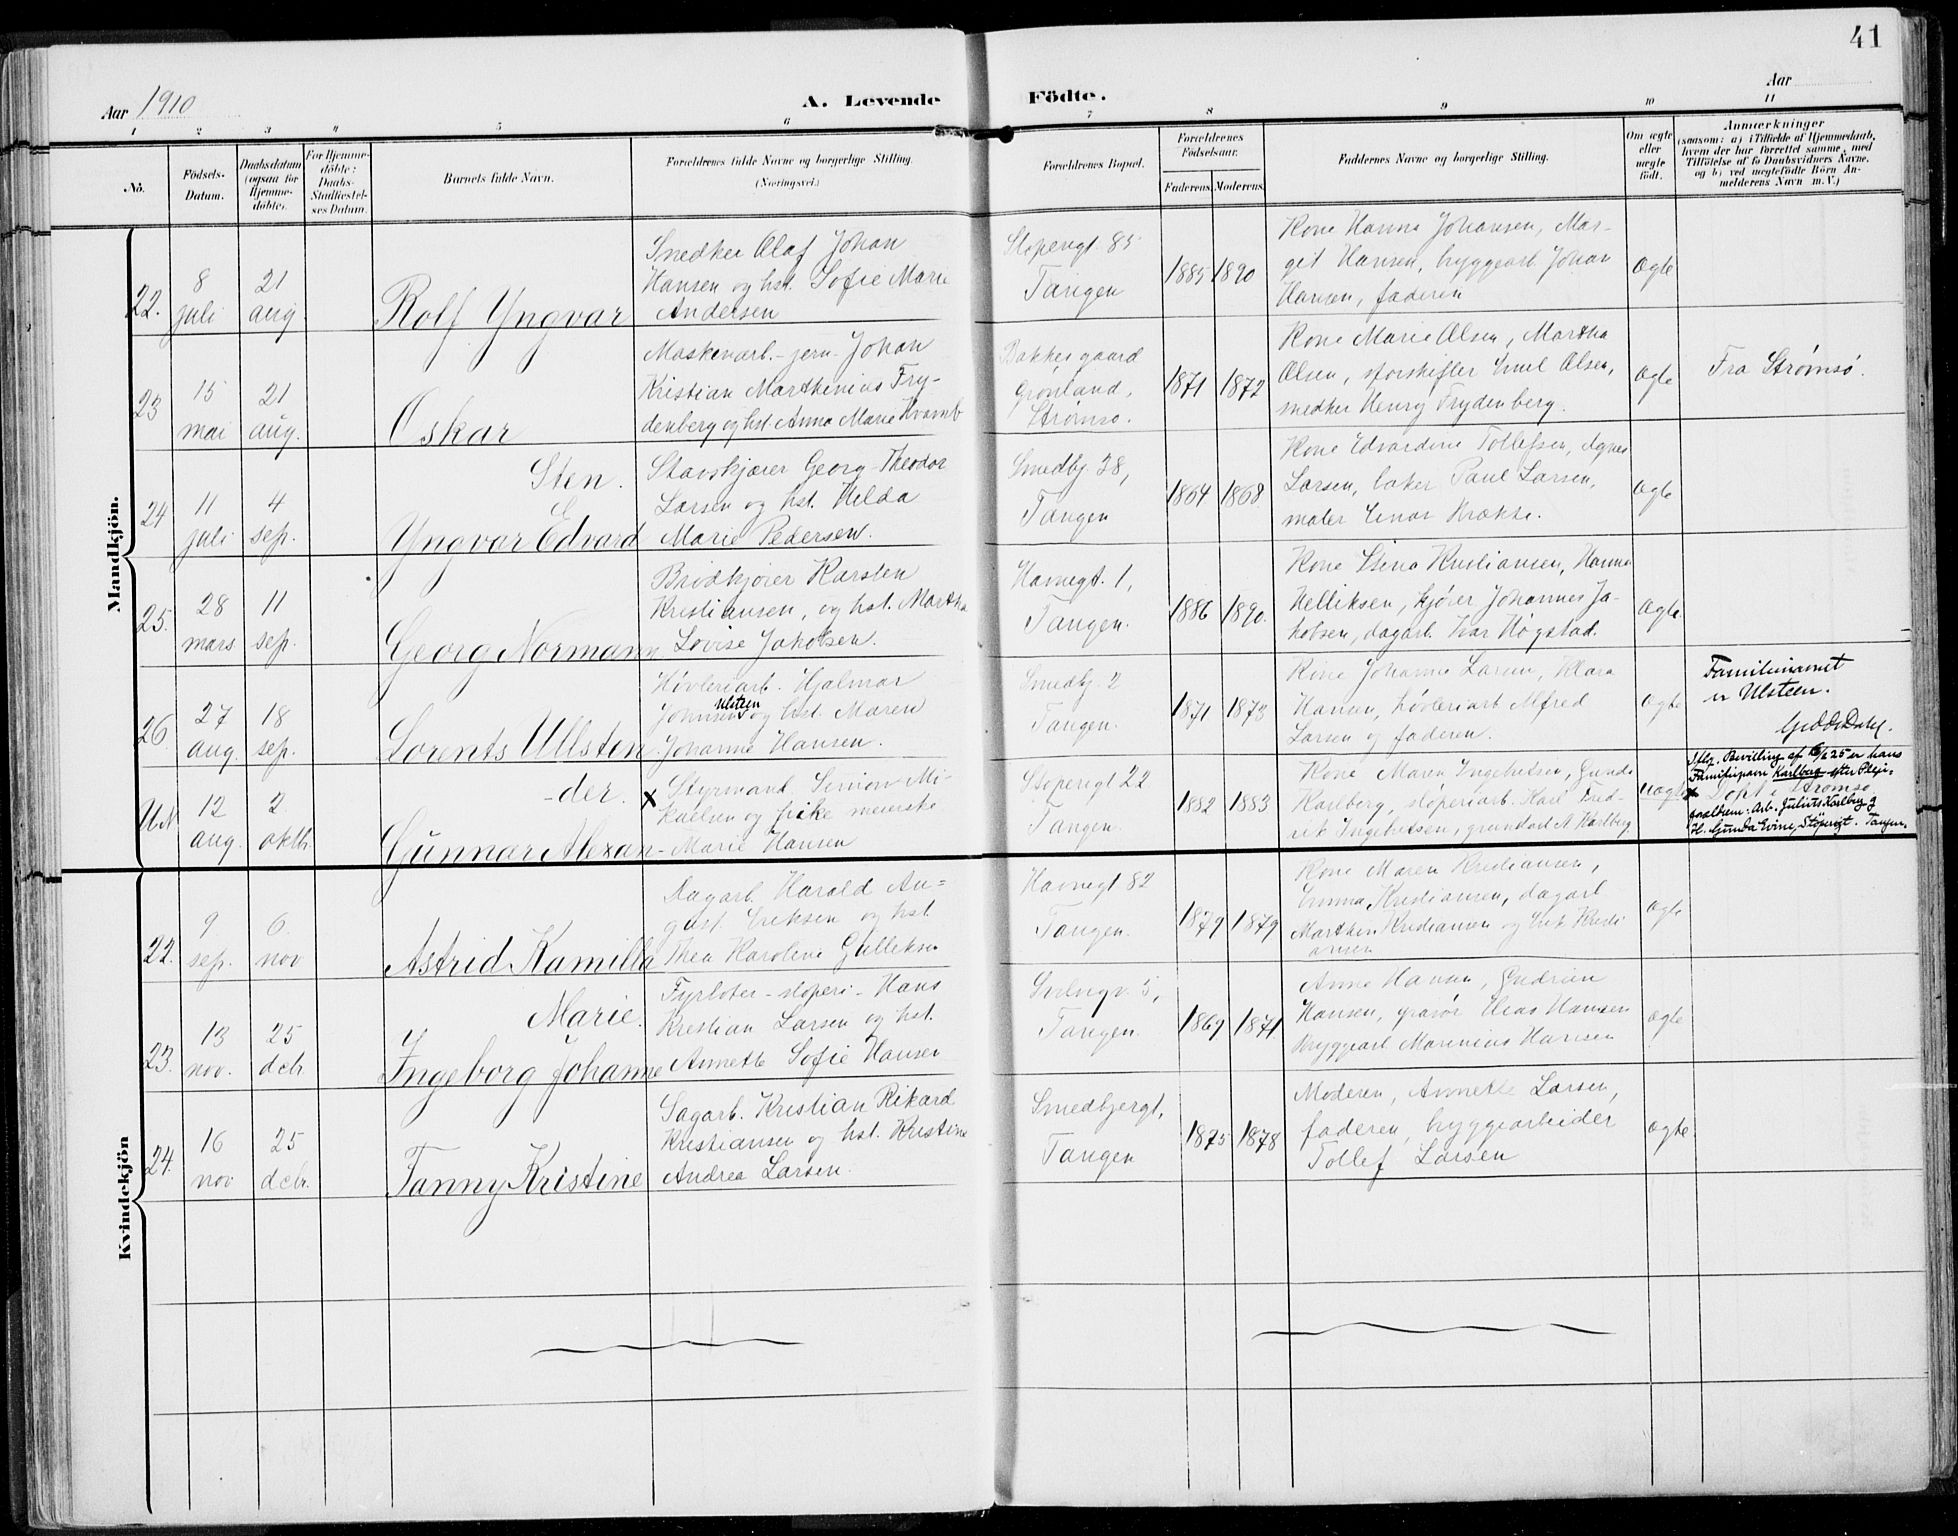 41
Aar 1910
A. Levende Födte.
Aar
1 2 3 4 5 6 7 8 9 10 11
No.
Födsels-
Datum.
Daabsdatum
(ogsaa for
Hjemme-
döbte).
For Hjemme-
döbte:
Daabs-
Stadfæstel-
ses Datum.
Barnets fulde Navn.
Forældrenes fulde Navne og borgerlige Stilling.
(Næringsvei.)
Forældrenes Bopæl.
Forældrenes
Födselsaar.
Faderens. Moderens.
Faddernes Navne og borgerlige Stilling.
Om ægte
eller
uægte
födt.
Anmærkninger
(saasom: a) i Tilfælde af Hjemmedaab,
hvem der har forrettet samme, med
Tilföielse af to Daabsvidners Navne.
og b) ved uægtefödte Börn An-
melderens Navn m. V.)
Mandkjön.
22.
8
juli
21
aug
Rolf Yngvar
Snedker Olaf Johan
Hansen og hst. Sofie Marie
Andersen
Støperigt. 85
Tangen
1885 1890
Kone Hanna Johansen, Mar-
git Hansen, bryggearb. Johan
Hansen, faderen
Ægte
23
15
mai
21
aug.
Oskar
Maskenarb. - jern - Johan
Kristian Marthinius Fry-
denberg og hst. Anna Marie Kvamb
Bakkegaard
Grønland,
Strømsø.
1871 1872
Kone Marie Olsen, Martha
Olsen, storskifter Emil Olsen,
snedker Henry Frydenberg.
Ægte
Fra Strømsø.
24
11
juli
4
sep.
Sten.
Yngvar Edvard
Stavskjærer Georg Theodor
Larsen og hst. Hilda
Marie Pedersen.
Smedbj. 38,
Tangen
1864 1868
Kone Edvardine Tollefsen, Agnes
Larsen, baker Paul Larsen,
maler Einar Krække.
Ægte
25.
28
mars
11
sep.
Georg Normann
Brødkjører Karsten
Kristiansen, og hst. Martha
Lovise Jakobsen.
Havnegt. 1,
Tangen.
1886 1890.
Kone Stina Kristiansen, Hanna
Helliksen, kjører Johannes Ja-
kobsen, dagarb. Ivar Høgstad.
Ægte.
26
27
aug.
18
sep.
Lorents Ullsten
Høvleriarb. Hjalmar
Ulsteen
Johnsen og hst. Maren
Johanne Hansen.
Smedbj. 2
Tangen.
1871 1873
Kone Johanne Larsen, Klara
Hansen, høvleriarb Alfred
Larsen og faderen.
Ægte
Familienavnet
er Ulsteen.
12
aug.
2
oktb.
-der.
Gunnar Alexan-
x Styrmand Simon Mi-
kaelsen og pike meierske
Marie Hansen
Støperigt 22
Tangen.
1882 1883
Kone Maren Ingebretsen, Gunda
Karlberg, støperiarb. Karl Fred-
rik Ingebretsen, grundarb A Karlberg.
uægte
Iflg. Bevilling af 6/6 25 er hans
Familienavn Karlberg efter Pleje-
x Døpt i Strømsø
forældrene: Arb. Julius Karlberg og
H. Gunda Evine, Støperigt. Tangen.
Kvindekjön
22.
9
sep.
6
nov
Astrid Kamilla
Dagarb. Harald Au-
gust Eriksen og hst.
Thea Karoline Gulleksen
Havnegt 82
Tangen.
1879 1879
Kone Maren Kristiansen,
Emma Kristiansen, dagarb
Marthin Kristiansen og Erik Kristi
ansen
Ægte
23.
13
nov.
25
dcbr
Marie.
Ingeborg Johanne
Fyrbøter - støperi - Hans
Kristian Larsen og hst.
Annette Sofie Hansen
Tangen.
1869 1871
Anna Hansen, Gudrun
Hansen, gravør Claus Hansen
bryggearb Marinius Hansen
Ægte
24.
16
nov
25
dcbr.
Fanny Kristine
Sagarb. Kristian Rikard
Kristiansen og hst. Kristine
Andrea Larsen.
Smedbjergt,
Tangen
1875 1878
Moderen, Annette Larsen,
faderen, bryggearbeider
Tollef Larsen
Ægte